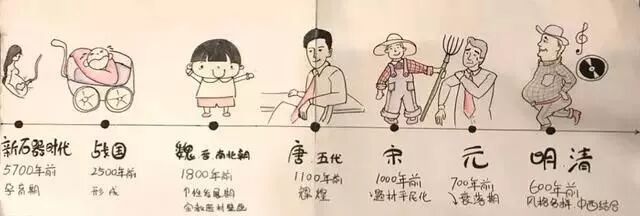 新石器时代
5700年前
孕育期
战国
2500年前
形成
魏晋南北朝
1800年前
个性发展期
宗教题材壁画
唐.五代
1100年前
辉煌
宋
1000年前
题材平民化
元
700年前
衰落期
明.清
600年前
风格多样,中西结合